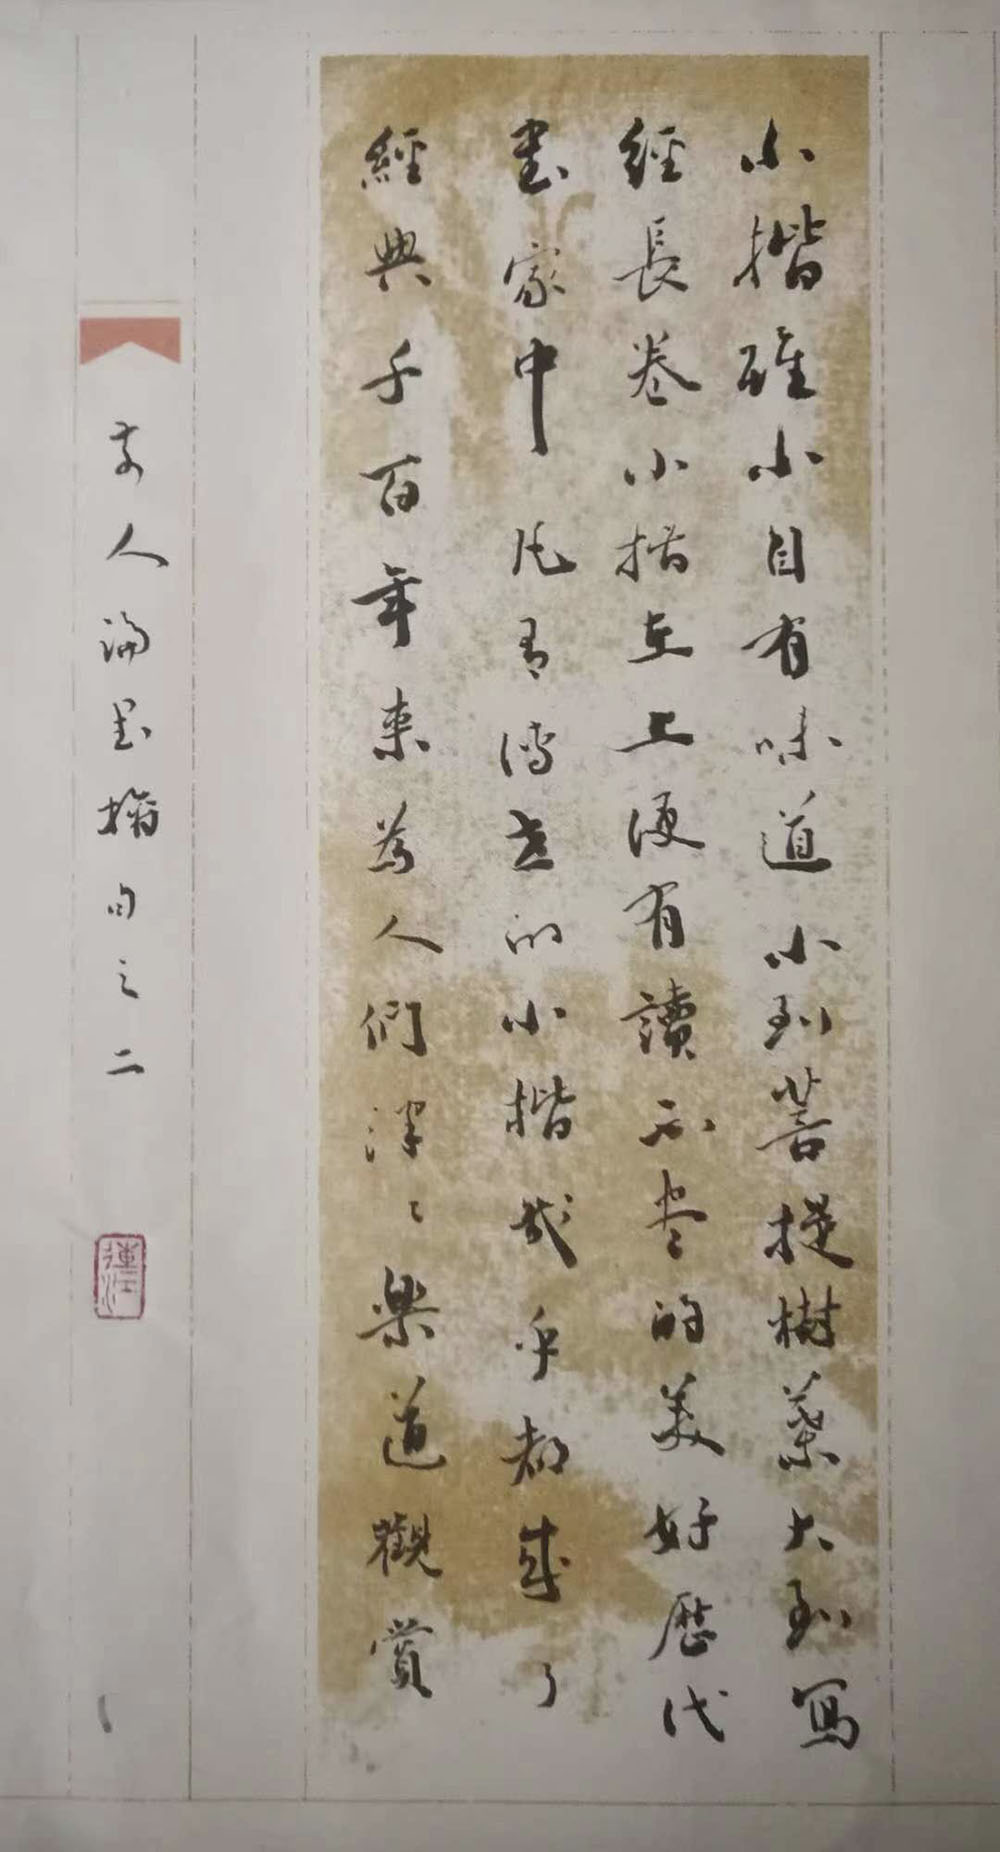 小楷雖小自有味道小到菩提樹葉大到寫
經長卷小楷在上便有讀不盡的美好歷代
書家中凡有傳世的小楷幾乎都成了
經典千百年來為人們津〻樂道觀賞
古人論書摘句之二